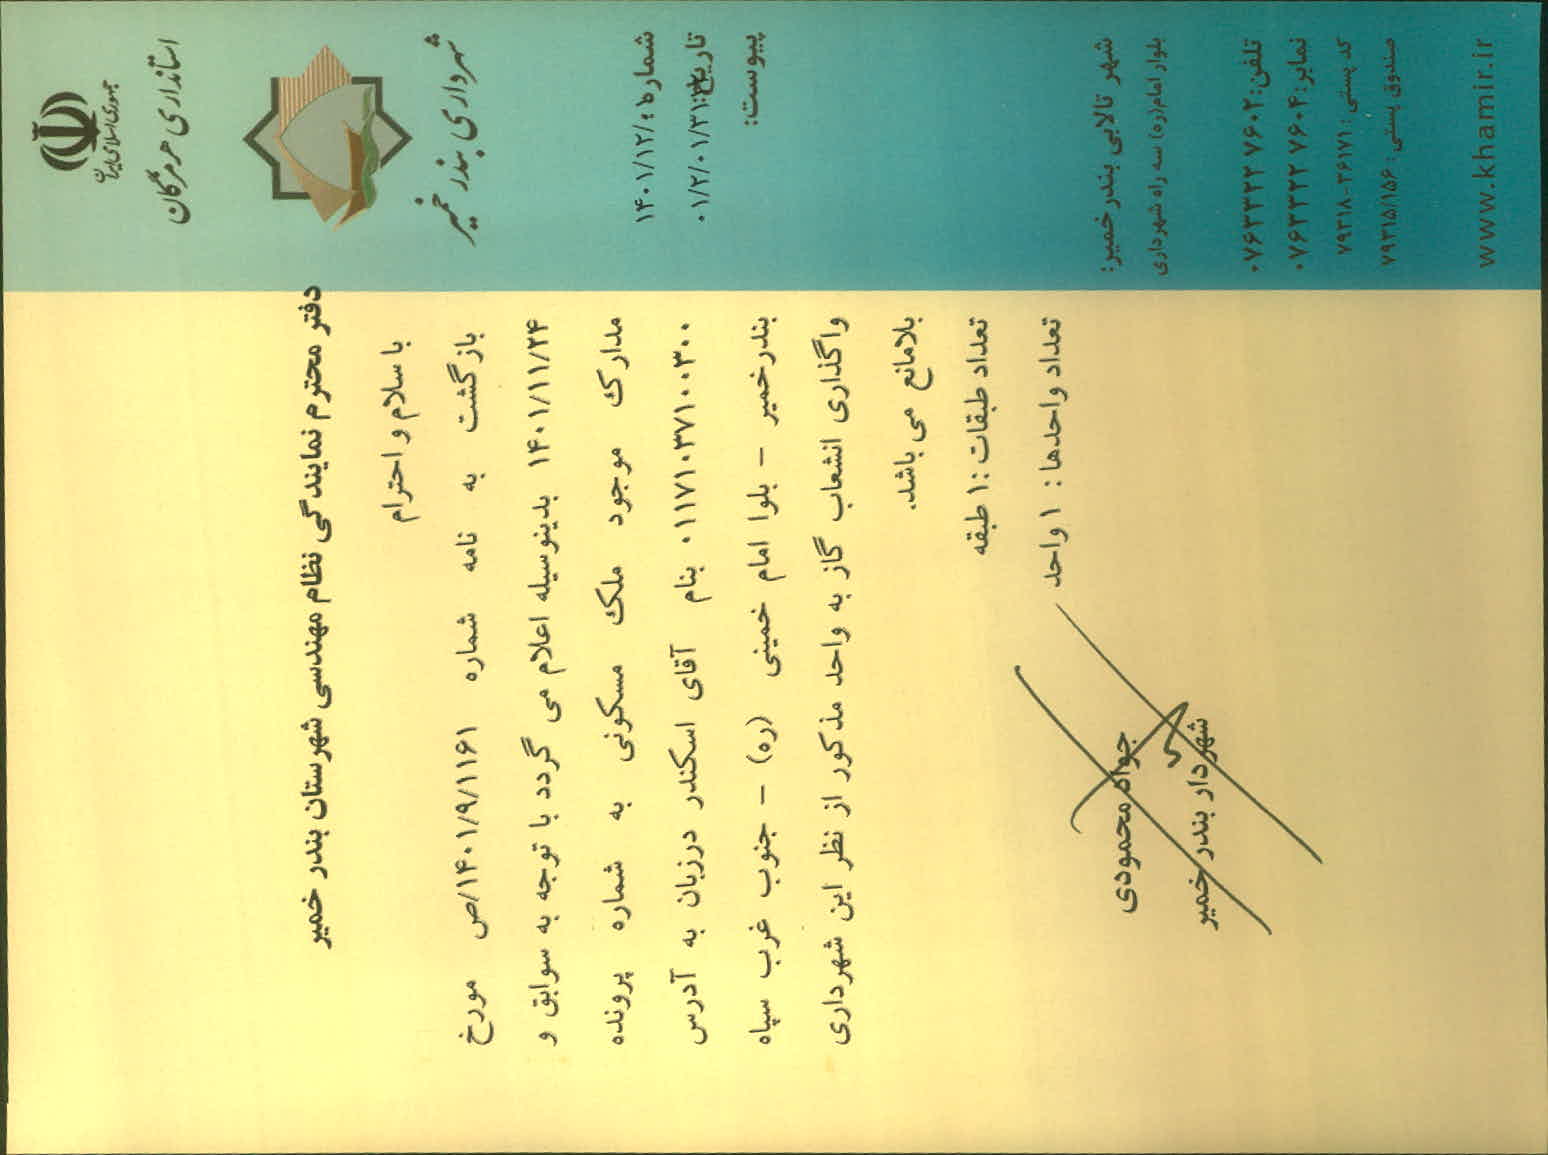 جمهوری اسلامی ایران
استانداری هرمزگان
شهرداری بندر خمیر
شماره:
۱۴۰۱/۱۲/
تاریخ:
۰۱/۲/۰۱/۳۱
پیوست:
شهر تالابی بندر خمیر:
بلوار امام(ره) سه راه شهرداری
تلفن: ۰۷۶۳۳۲۲ ۷۶۰۲
نمابر: ۰۷۶۳۳۲۲ ۷۶۰۴
کد پستی: ۷۹۳۱۸-۳۶۱۷۱
صندوق پستی: ۷۹۳۱۵/۱۵۶
www.khamir.ir
دفتر محترم نمایندگی نظام مهندسی شهرستان بندر خمیر
با سلام و احترام
بازگشت به نامه شماره ۱۴۰۱/۹/۱۱۶۱/ص مورخ
۱۴۰۱/۱۱/۲۴ بدینوسیله اعلام می گردد با توجه به سوابق و
مدارک موجود ملک مسکونی به شماره پرونده
۰۱۱۷۱۰۳۷۱۰۰۳۰۰ بنام آقای اسکندر درزبان به آدرس
بندرخمیر - بلوا امام خمینی (ره) - جنوب غرب سپاه
واگذاری انشعاب گاز به واحد مذکور از نظر این شهرداری
بلامانع می باشد.
تعداد طبقات :۱ طبقه
تعداد واحدها : ۱ واحد
جواد محمودی
شهردار بندر خمیر